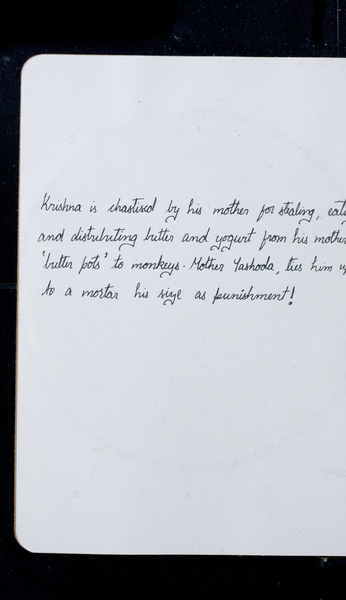 Krishna is chastised by his mother for stealing, eat
and distributing butter and yogurt from his mother
'butter pots' to monkeys. Mother Yashoda, ties him u
to a mortar his size as punishment!